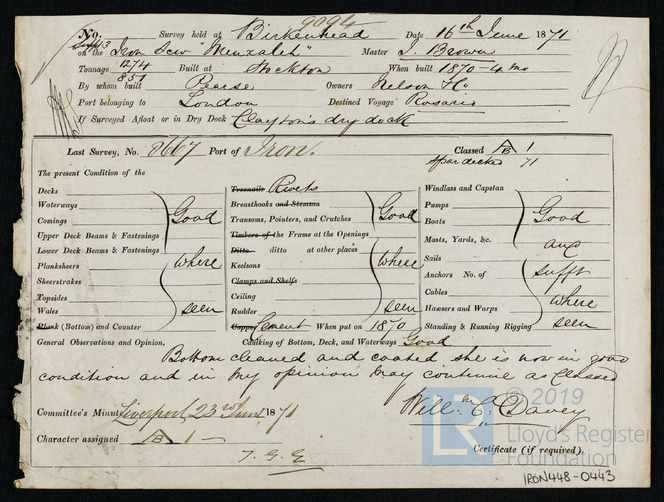 9094
No. Survey held at Birkenhead Date 16th June 1871
on the Iron Scw "Menzaleh" Master J. Brown
Tonnage 1274 851 Built at Stockton When built 1870-4 mo
By whom built Pearse Owners Nelson & Co
Port belonging to London Destined Voyage Rosario
If Surveyed Afloat or in Dry Dock Clayton's dry dock
Last Survey, No. 8667 Port of Iron. Classed A B 1
Spar decked 71
The present Condition of the
Decks
Waterways
Comings
Upper Deck Beams & Fastenings
Lower Deck Beams & Fastenings
Planksheers
Sheerstrakes
Topsides
Wales
Plank (Bottom) and Counter
Good
where
seen
Treenails Rivets
Breasthooks and Stemson
Transoms, Pointers, and Crutches
Timbers of the Frame at the Openings
Ditto ditto at other places
Keelsons
Clamps and Shelfs
Ceiling
Rudder
Copper Cement When put on 1870
Good
where
seen
Windlass and Capstan
Pumps
Boats
Masts, Yards, &c.
Sails
Anchors No. of
Cables
Hawsers and Warps
Standing & Running Rigging
Good
and
sufft
where
seen
General Observations and Opinion, Caulking of Bottom, Deck, and Waterways Good
Bottom cleaned and coated she is now in good
condition and in my opinion may continue as Classed
Committee's Minute Liverpool 23rd June 1871
Willm C. Davey
Character assigned A B 1 -
Certificate (if required).
© 2019
LR
Lloyd's Register
Foundation
IRON448-0443